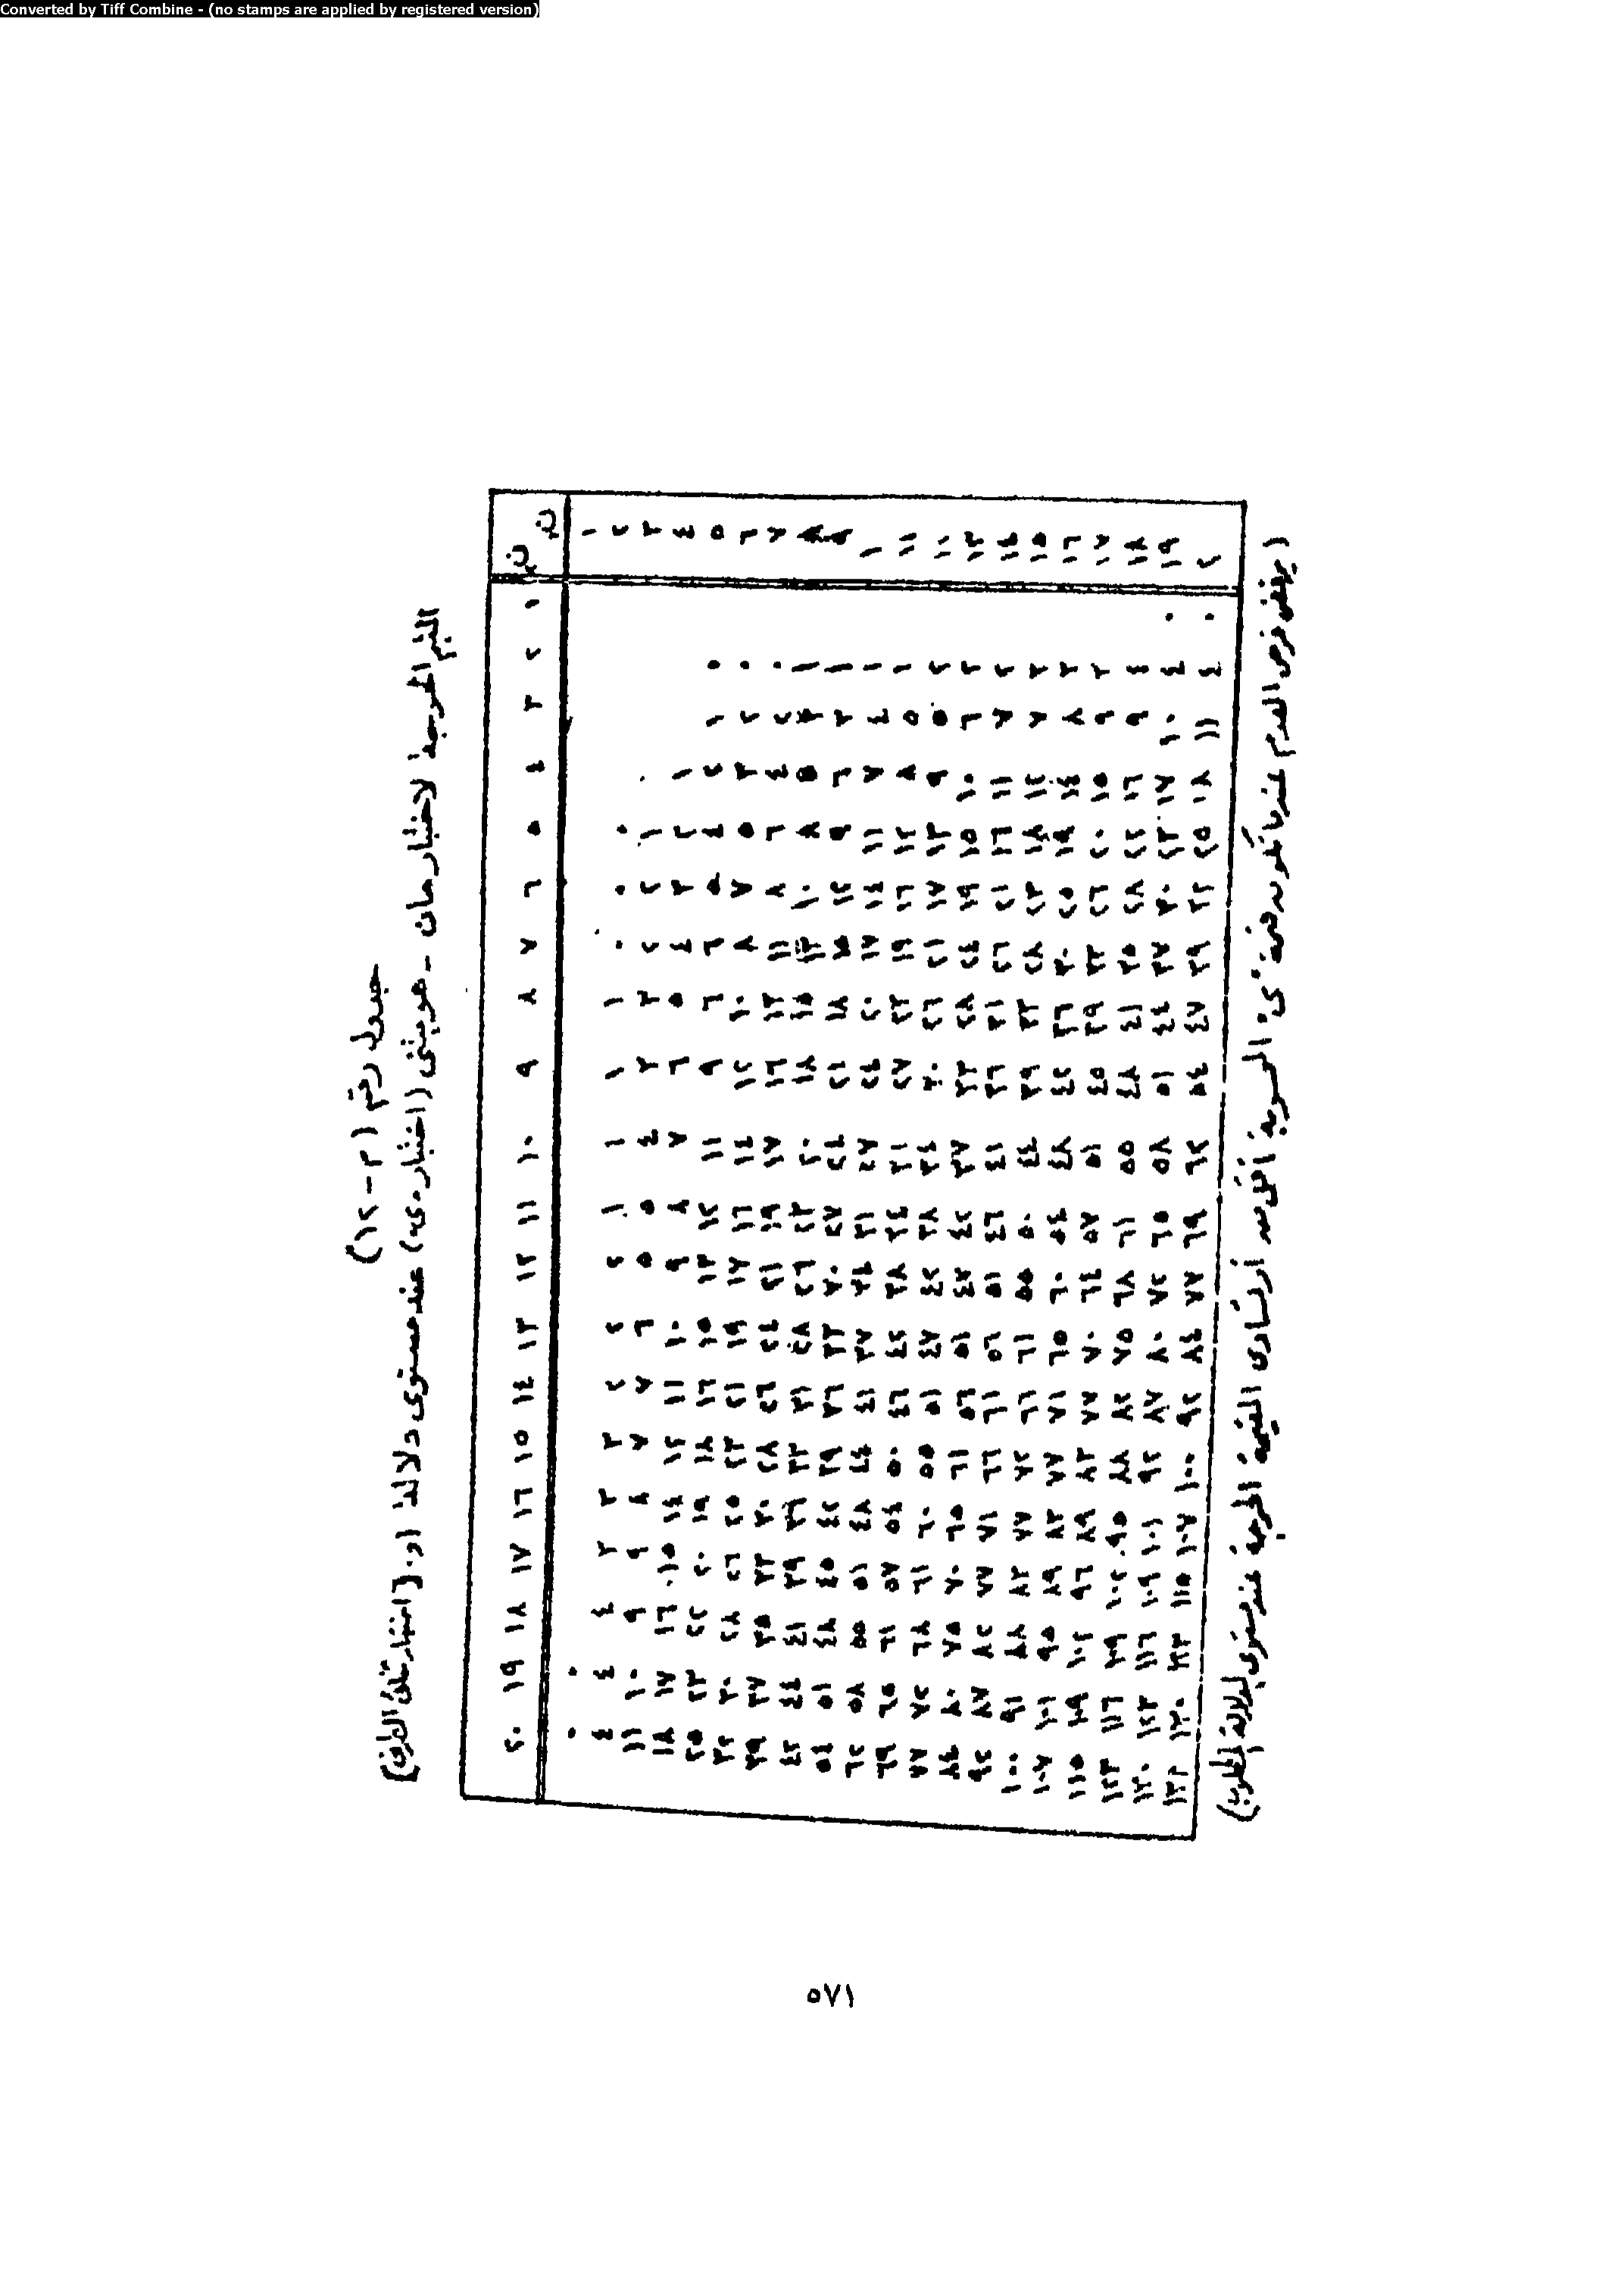 Converted by Tiff Combine - (no stamps are applied by registered version)
جدول رقم (م-١٢)
القيم الحرجة لاختبار مان - هويتنى (اختبار «ى») عند مستوى دلالة ٠٫١ (اختبار ثنائى الطرف)
ن ن ١ ٢ ٣ ٤ ٥ ٦ ٧ ٨ ٩ ١٠ ١١ ١٢ ١٣ ١٤ ١٥ ١٦ ١٧ ١٨ ١٩ ٢٠
١ ٠ ٠
٢ ٠ ٠ ٠ ١ ١ ١ ١ ٢ ٢ ٢ ٣ ٣ ٣ ٤ ٤ ٤
٣ ٠ ١ ٢ ٢ ٣ ٣ ٤ ٥ ٥ ٦ ٧ ٧ ٨ ٩ ٩ ١٠ ١١
٤ ١ ٢ ٣ ٤ ٥ ٦ ٧ ٨ ٩ ١٠ ١١ ١٢ ١٤ ١٥ ١٦ ١٧ ١٨
٥ ٠ ١ ٢ ٤ ٥ ٦ ٦ ٩ ١١ ١٢ ١٣ ١٥ ١٦ ١٨ ١٩ ٢٠ ٢٢ ٢٣ ٢٥
٦ ٠ ٢ ٣ ٥ ٧ ٨ ١٠ ١٢ ١٤ ١٦ ١٧ ١٩ ٢١ ٢٣ ٢٥ ٢٦ ٢٨ ٣٠ ٣٢
٧ ٠ ٢ ٤ ٦ ٨ ١١ ١٣ ١٦ ١٧ ١٩ ٢١ ٢٤ ٢٦ ٢٨ ٣٠ ٣٣ ٣٥ ٣٧ ٣٩
٨ ١ ٣ ٥ ٨ ١٠ ١٣ ١٥ ١٨ ٢٠ ٢٣ ٢٦ ٢٨ ٣١ ٣٣ ٣٦ ٣٩ ٤١ ٤٤ ٤٢
٩ ١ ٣ ٦ ٩ ١٢ ١٥ ١٨ ٢١ ٢٤ ٢٧ ٣٠ ٣٣ ٣٦ ٣٩ ٤٢ ٤٥ ٤٨ ٥١ ٥٤
١٠ ١ ٤ ٧ ١١ ١٤ ١٧ ٢٠ ٢٤ ٢٧ ٣١ ٣٤ ٣٧ ٤١ ٤٤ ٤٨ ٥١ ٥٥ ٥٨ ٦٢
١١ ١ ٥ ٨ ١٢ ١٦ ١٩ ٢٣ ٢٧ ٣١ ٣٤ ٣٨ ٤٢ ٤٦ ٥٠ ٥٤ ٥٧ ٦١ ٦٥ ٦٩
١٢ ٢ ٥ ٩ ١٣ ١٧ ٢١ ٢٦ ٣٠ ٣٤ ٣٨ ٤٢ ٤٧ ٥١ ٥٥ ٦٠ ٦١ ٦٨ ٧٢ ٧٧
١٣ ٢ ٦ ١٠ ١٥ ١٩ ٢٤ ٢٨ ٣٣ ٣٧ ٤٢ ٤٧ ٥١ ٥٦ ٦١ ٦٥ ٧٠ ٧٥ ٨٠ ٨٤
١٤ ٢ ٧ ١١ ١٦ ٢١ ٢٦ ٣١ ٣٦ ٤١ ٤٦ ٥١ ٥٦ ٦١ ٦٦ ٧١ ٧٧ ٨٢ ٨٧ ٩٢
١٥ ٣ ٧ ١٢ ١٨ ٢٣ ٢٨ ٣٣ ٣٩ ٤٤ ٥٠ ٥٥ ٦١ ٦٦ ٧٢ ٧٧ ٨٣ ٨٨ ٩١ ١٠٠
١٦ ٣ ٨ ١٤ ١٩ ٢٥ ٣٠ ٣٦ ٤٢ ٤٨ ٥٤ ٦٠ ٦٥ ٧١ ٧٧ ٨٣ ٨٩ ٩٥ ١٠١ ١٠٧
١٧ ٣ ٩ ١٥ ٢٠ ٢٦ ٣٣ ٣٩ ٤٥ ٥١ ٥٧ ٦٤ ٧٠ ٧٧ ٨٣ ٨٩ ٩٦ ١٠٢ ١٠٩ ١١٥
١٨ ٤ ٩ ١٦ ٢٢ ٢٨ ٣٥ ٤١ ٤٨ ٥٥ ٦١ ٦٨ ٧٥ ٨٢ ٨٨ ٩٥ ١٠٢ ١٠٩ ١١٦ ١٢٣
١٩ ٠ ٤ ١٠ ١٧ ٢٣ ٣٠ ٣٧ ٤٤ ٥١ ٥٨ ٦٥ ٧٢ ٨٠ ٨٧ ٩٢ ١٠١ ١٠٩ ١١٦ ١٢٣ ١٣٠
٢٠ ٠ ٤ ١١ ١٨ ٢٥ ٣٢ ٣٩ ٤٧ ٥٤ ٦٢ ٦٩ ٧٧ ٨٤ ٩٢ ١٠٠ ١٠٧ ١١٥ ١٢٣ ١٣٠ ١٣٨
(يرفض فرض العدم عندما تكون قيمة «ى» المحسوبة أقل من أو تساوى القيمة الحرجة عند مستوى الدلالة المطلوبة)
٥٧١